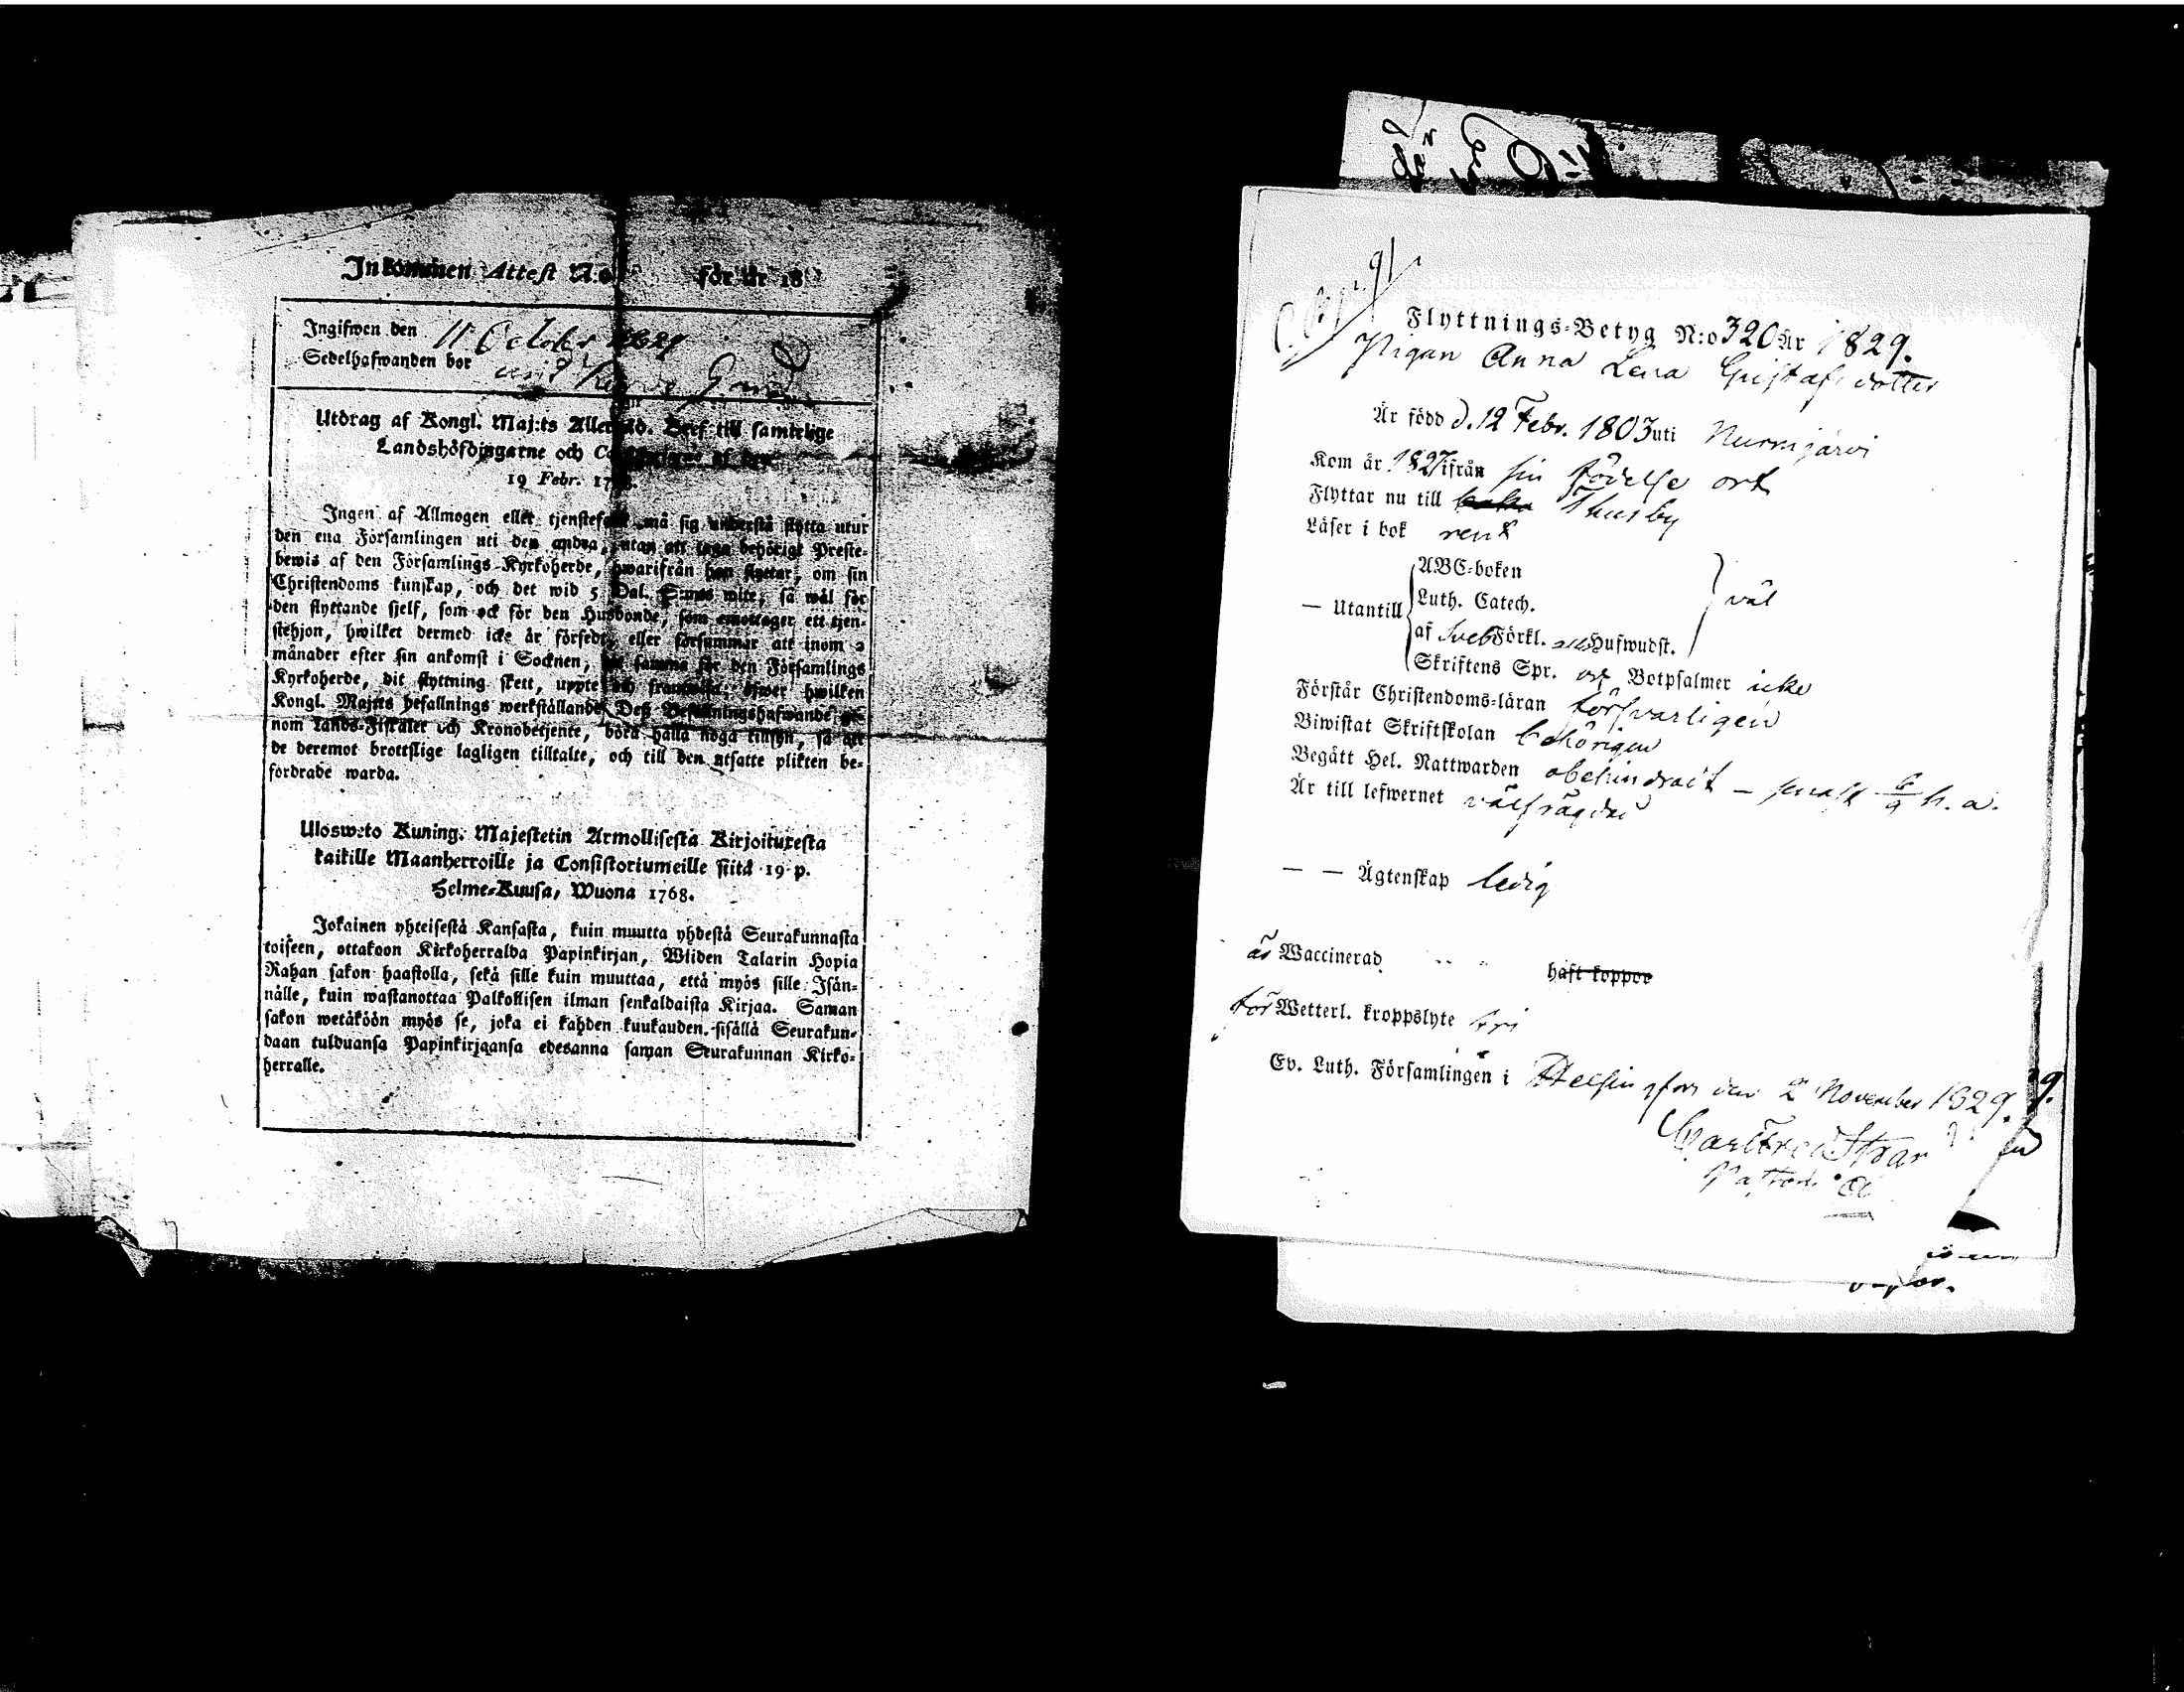 Inkommen Attest N:o för år 18
Ingifwen den 11 October 1829
Sedelhafwanden bor
Utdrag af Kongl. Maj:ts Allernåd. Bref till samtelige
Landshöfdingarne och
19 Febr. 17
Ingen af Allmogen eller tjenstefolk må sig understå flytta utur
den ena Församlingen uti den andra, utan att taga behörigt Preste-
bewis af den Församlings Kyrkoherde, hwarifrån han flyttar, om sin
Christendoms kunskap, och det wid 5 Dal. S:mts wite, så wäl för
den flyttande sjelf, som ock för den Husbonde, som emottager ett tjen-
stehjon, hwilket dermed icke är försedt, eller försummar att inom 2
månader efter sin ankomst i Socknen, det samma för den Församlings
Kyrkoherde, dit flyttning skett, uppte och framwisa; öfwer hwilken
Kongl. Maj:ts befallnings werkställande Deß Befallningshafwande ge-
nom Lands-Fiskaler och Kronobetjente, böra hålla noga tillsyn, så att
de deremot brottslige lagligen tilltalte, och till den utsatte plikten be-
fordrade warda.
Ulosweto Kuning. Majestetin Armollisesta Kirjoituxesta
kaikille Maanherroille ja Consistoriumeille siitä 19 p.
Helme-Kuusa, Wuona 1768.
Jokainen yhteisestä Kansasta, kuin muutta yhdestä Seurakunnasta
toiseen, ottakoon Kirkoherralda Papinkirjan, Wiiden Talarin Hopia
Rahan sakon haastolla, sekä sille kuin muuttaa, että myös sille Isän-
nälle, kuin wastanottaa Palkollisen ilman senkaldaista Kirjaa. Saman
sakon wetäköön myös se, joka ei kahden kuukauden sisällä Seurakun-
daan tulduansa Papinkirjaansa edesanna saman Seurakunnan Kirko-
herralle.
Flyttnings-Betyg N:o 320 År 1829.
Pigan Anna Lena Gustafsdotter
Är född d. 12 Febr. 1803 uti Nurmijärvi
Kom år 1827 ifrån sin födelse ort
Flyttar nu till Thusby
Läser i bok rent
ABC-boken
— Utantill Luth. Catech. väl
af Sveb Förkl. Hufwudst.
Skriftens Spr. och Botpsalmer icke
Förstår Christendoms-läran försvarligen
Biwistat Skriftskolan behörigen
Begått Hel. Nattwarden obehindradt — senast 6/9 h. a.
Är till lefwernet välfrägdad
— — Ägtenskap ledig
är Waccinerad haft koppor
för Wetterl. kroppslyte fri
Ev. Luth. Församlingen i Helsingfors den 2 November 1829.